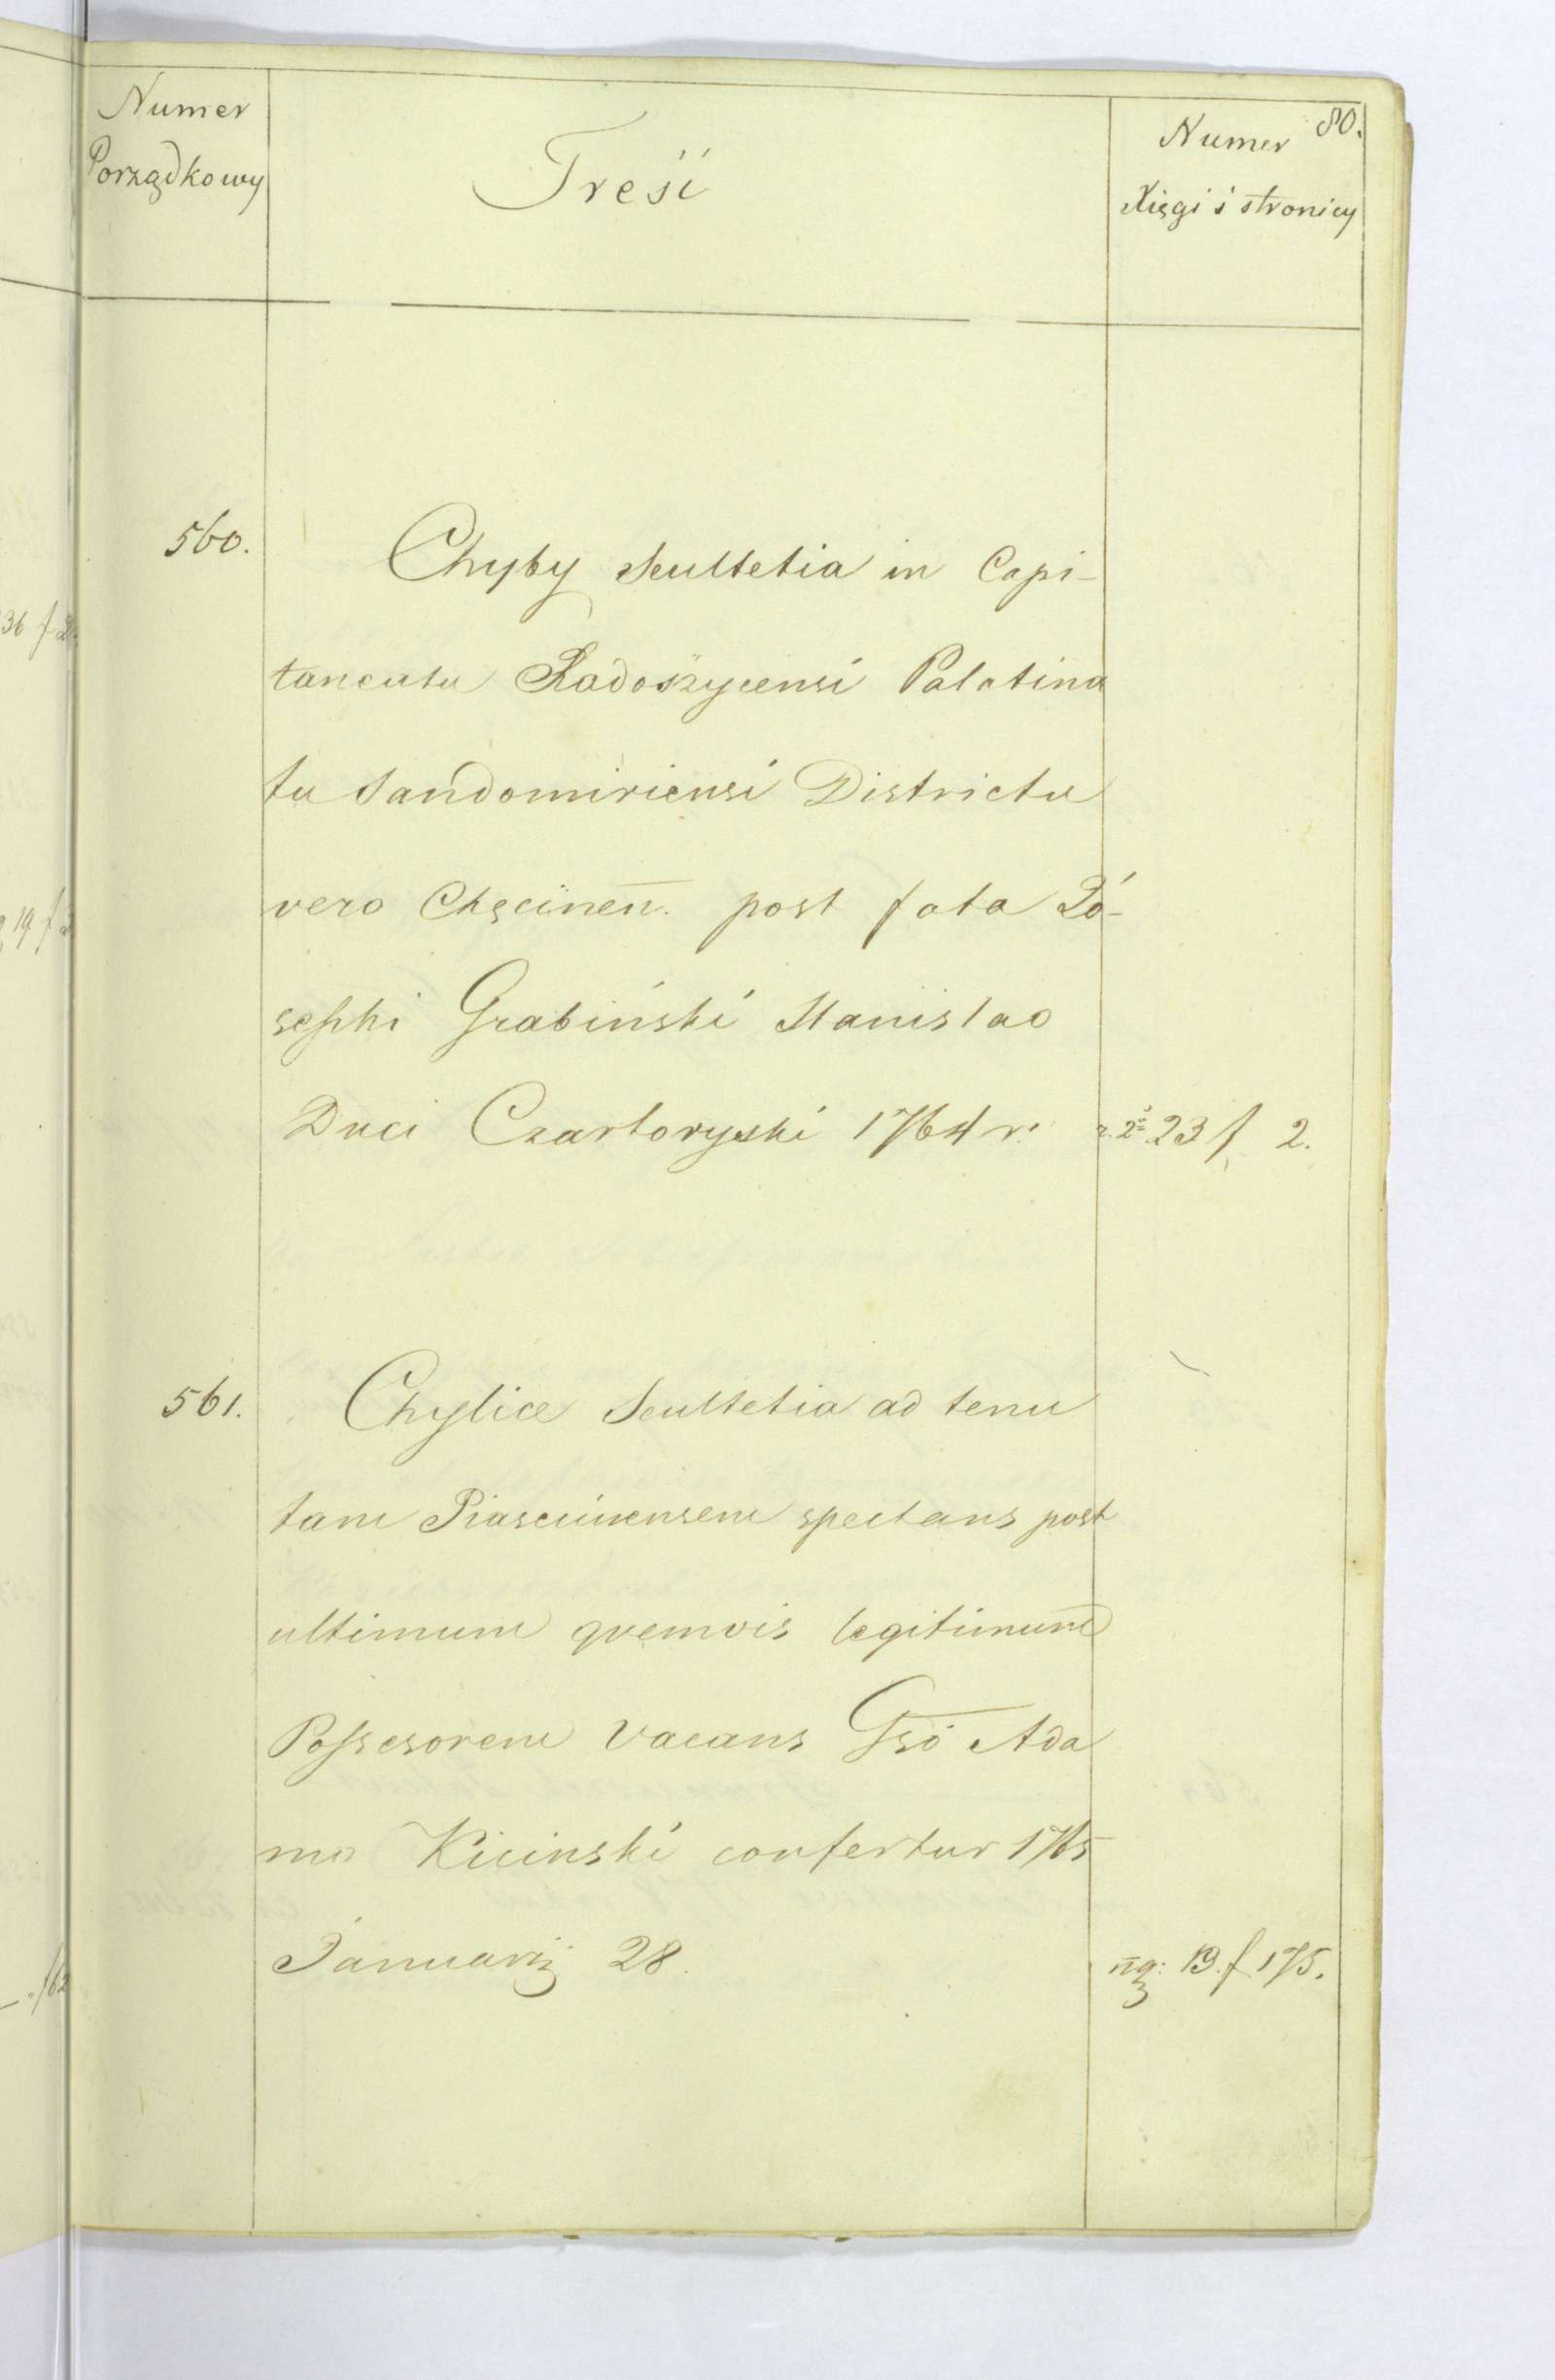 80.
Numer
Porządkowy
Treść
Numer
Xięgi i stronicy
560.
Chyby Scultetia in Capi-
taneatu Radoszycensi Palatina
tu Sandomiriensi Districtu
vero Chęcinen. post fata Jo-
sephi Grabiński Stanislao
Duci Czartoryski 1764 r. 23 f 2.
561.
Chylice Scultetia ad tenu
tam Piasecinensem spectans post
ultimum quemvis legitimum
Possesorem vacans Gso Ada
mo Kicinski confertur 1765
Januarij 28. nq: 19. f 175.